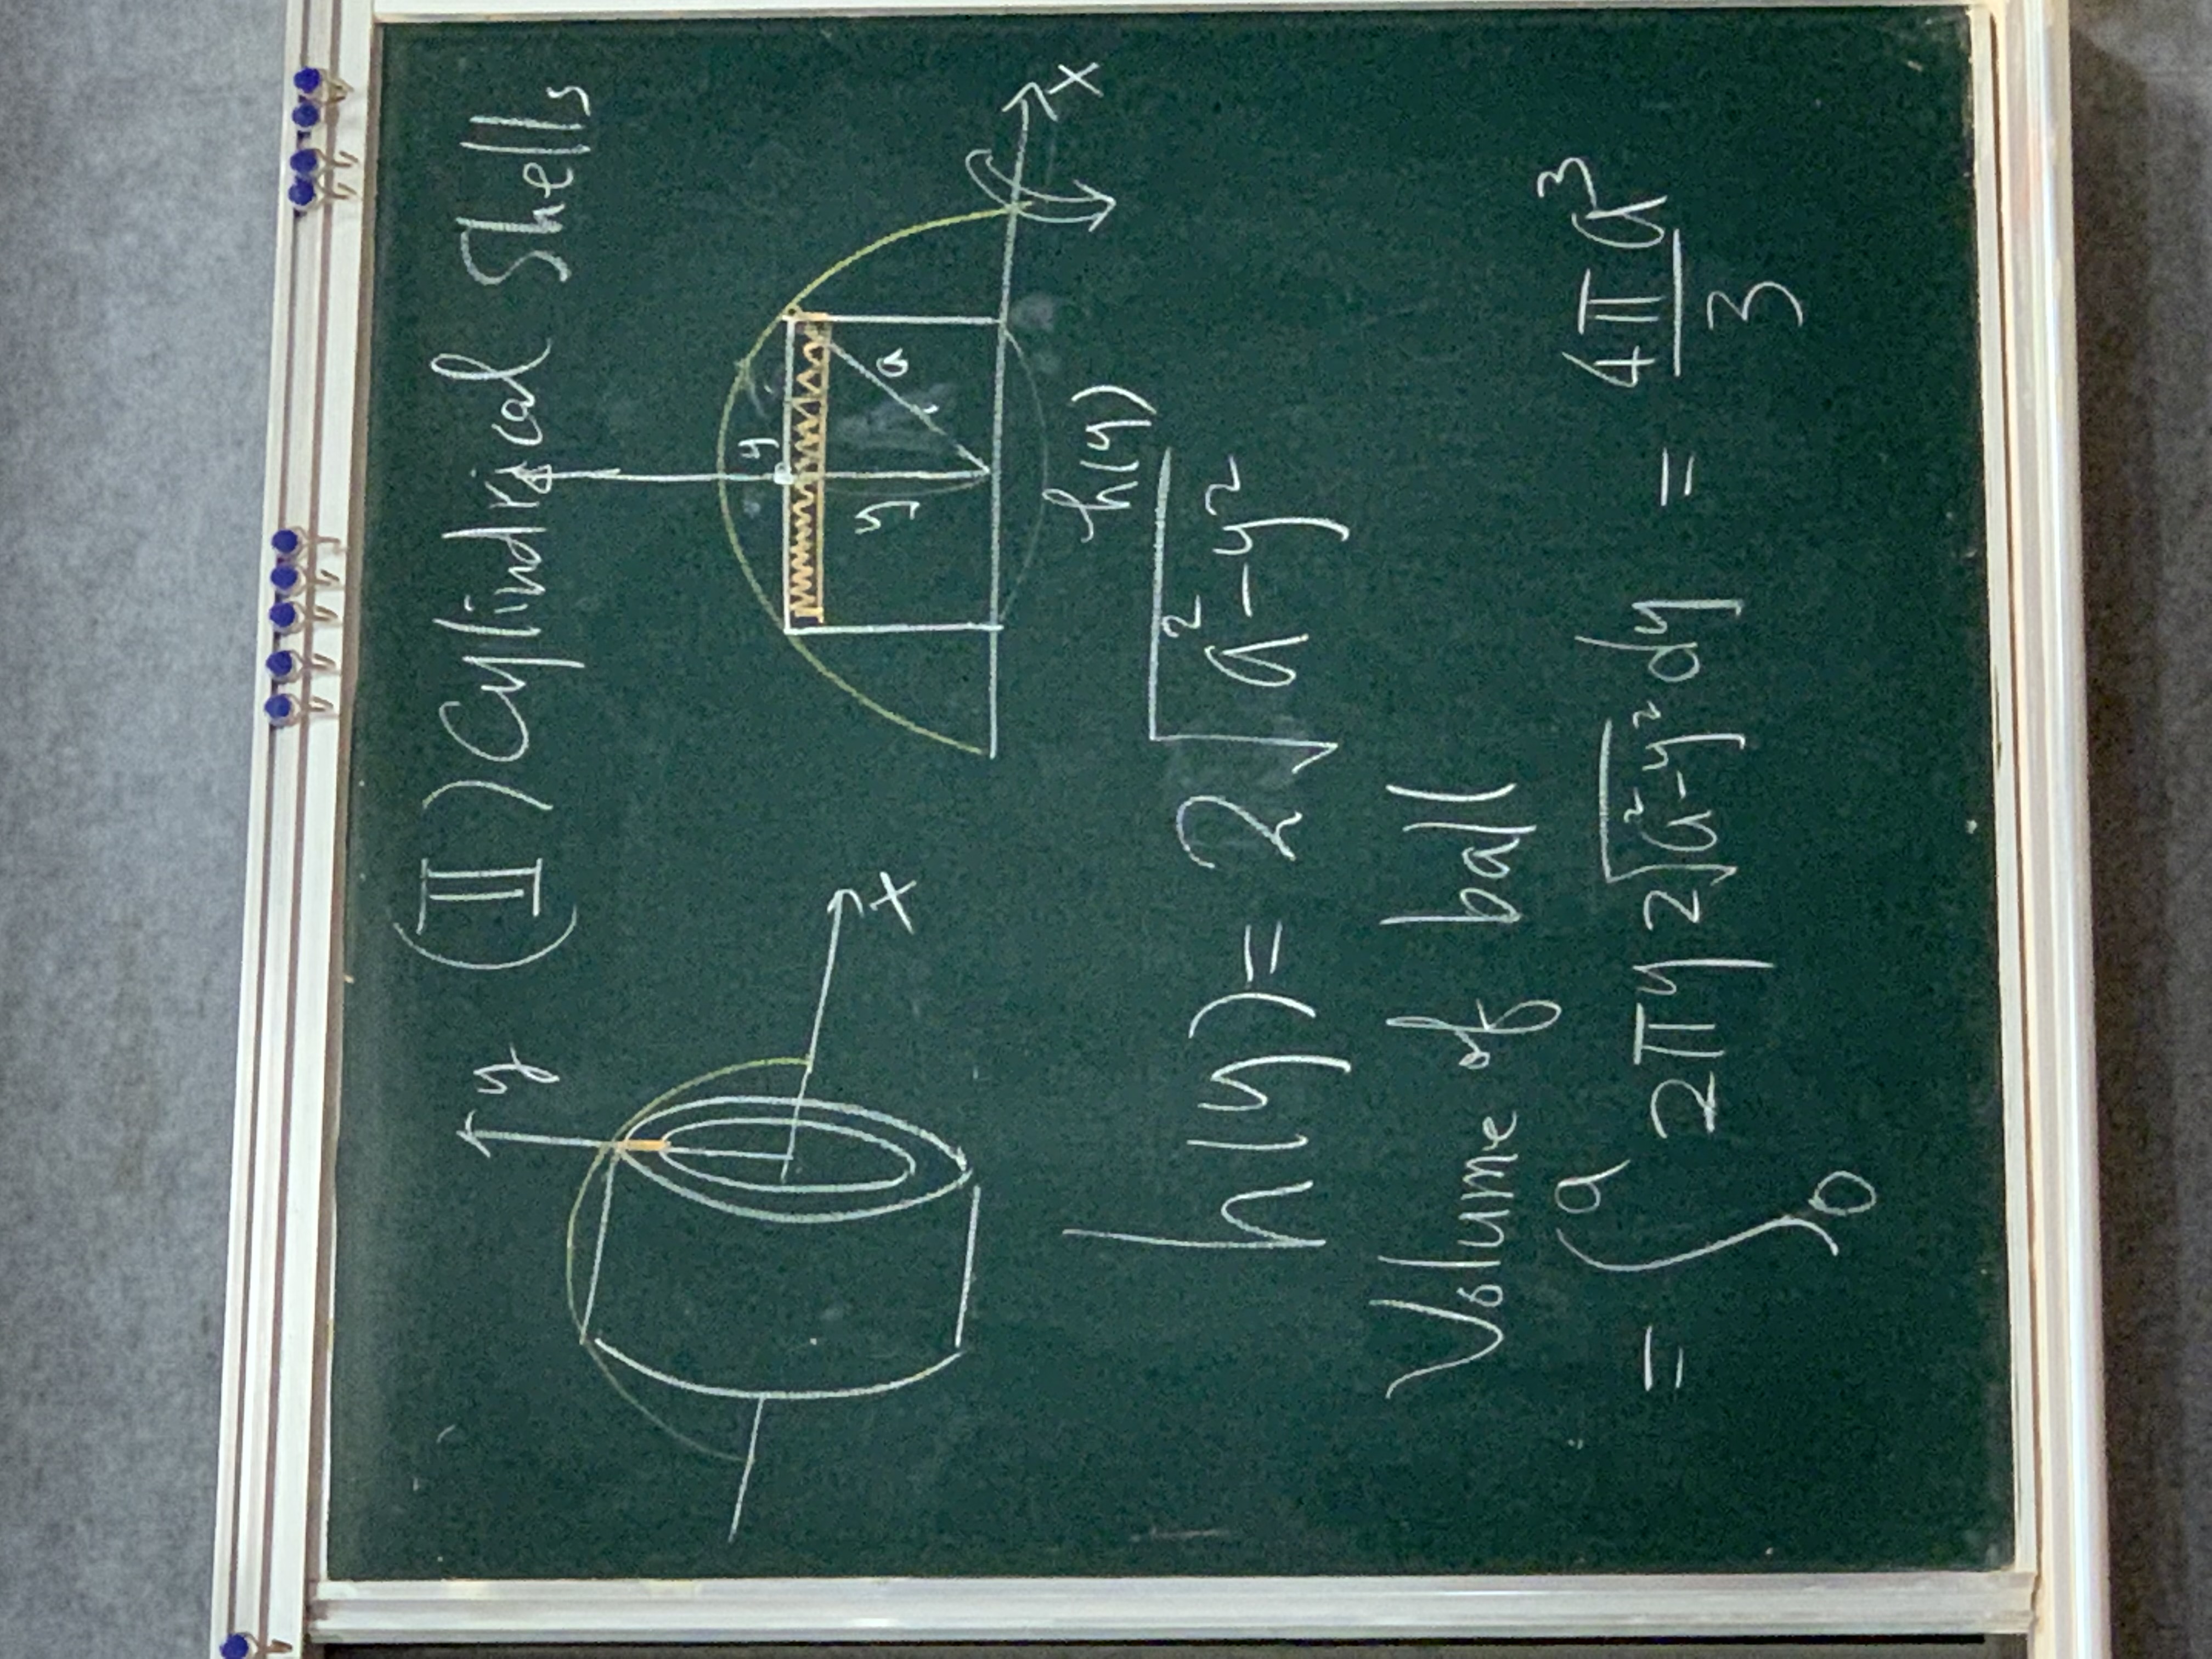 (II) Cylindrical Shells
y
x
y
y
a
x
h(y)
h(y) = 2√(a²-y²)
Volume of ball
= ∫₀ᵃ 2πy 2√(a²-y²) dy = 4πa³/3